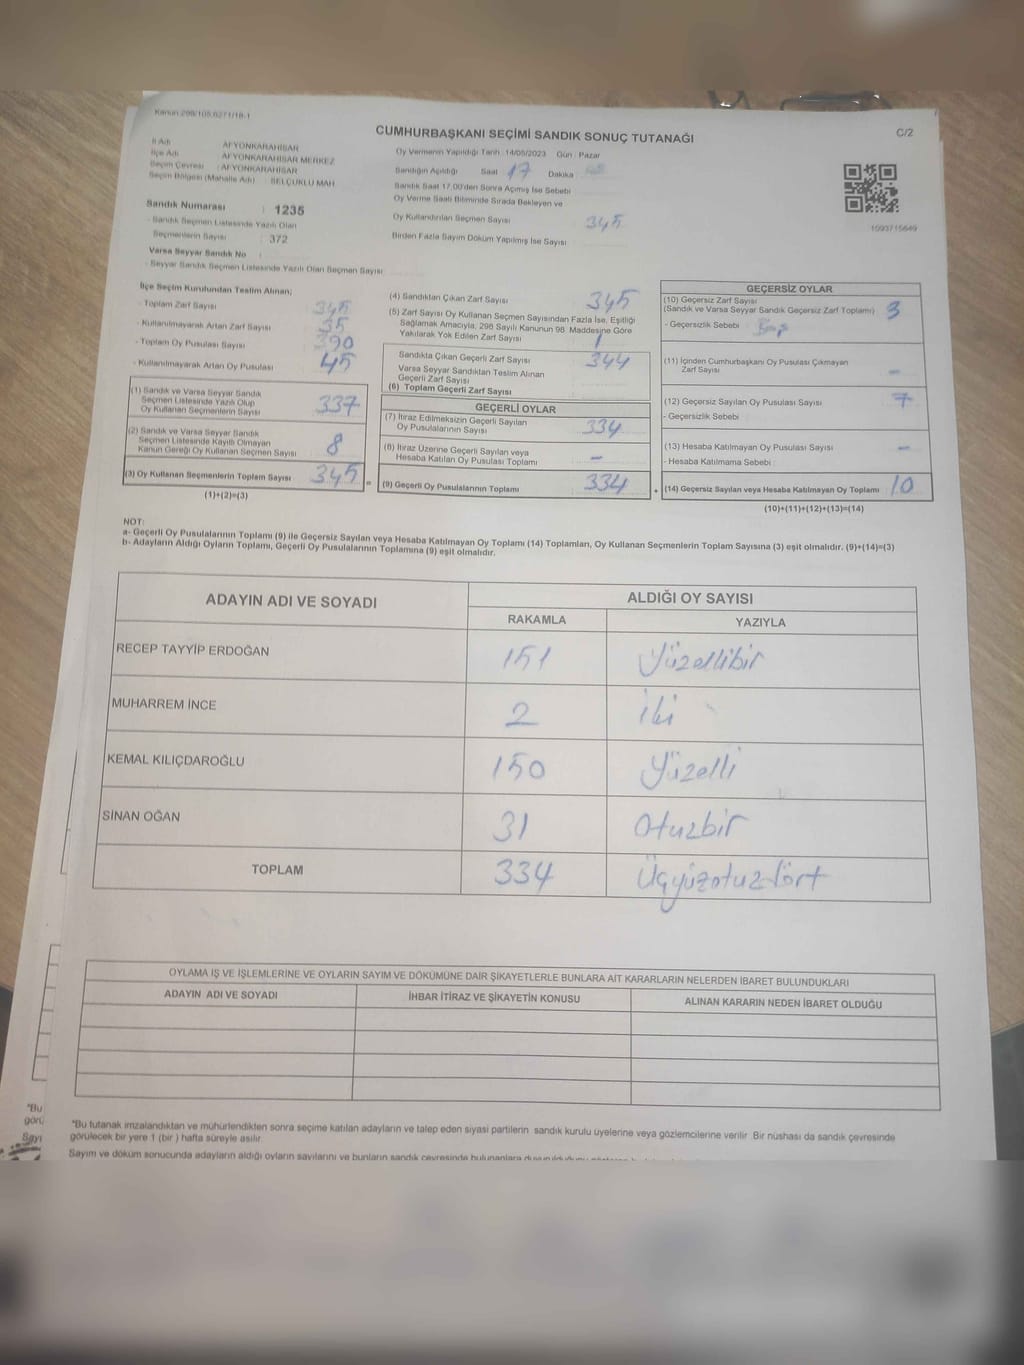 Kanun:298/105,6271/18-1
CUMHURBAŞKANI SEÇİMİ SANDIK SONUÇ TUTANAĞI
C/2
İl Adı : AFYONKARAHİSAR
İlçe Adı : AFYONKARAHİSAR MERKEZ
Seçim Çevresi : AFYONKARAHİSAR
Seçim Bölgesi (Mahalle Adı) : SELÇUKLU MAH.
Sandık Numarası : 1235
- Sandık Seçmen Listesinde Yazılı Olan
Seçmenlerin Sayısı : 372
Varsa Seyyar Sandık No :
- Seyyar Sandık Seçmen Listesinde Yazılı Olan Seçmen Sayısı
Oy Vermenin Yapıldığı Tarih : 14/05/2023 Gün : Pazar
Sandığın Açıldığı Saat 17 Dakika
Sandık Saat 17.00'den Sonra Açılmış İse Sebebi
Oy Verme Saati Bitiminde Sırada Bekleyen ve
Oy Kullandırılan Seçmen Sayısı 345
Birden Fazla Sayım Döküm Yapılmış İse Sayısı
1093715649
İlçe Seçim Kurulundan Teslim Alınan;
- Toplam Zarf Sayısı
- Kullanılmayarak Artan Zarf Sayısı 35
- Toplam Oy Pusulası Sayısı 390
- Kullanılmayarak Artan Oy Pusulası 45
(1) Sandık ve Varsa Seyyar Sandık
Seçmen Listesinde Yazılı Olup
Oy Kullanan Seçmenlerin Sayısı 337
(2) Sandık ve Varsa Seyyar Sandık
Seçmen Listesinde Kayıtlı Olmayan
Kanun Gereği Oy Kullanan Seçmen Sayısı 8
(3) Oy Kullanan Seçmenlerin Toplam Sayısı 345
(1)+(2)=(3)
=
(4) Sandıktan Çıkan Zarf Sayısı 345
(5) Zarf Sayısı Oy Kullanan Seçmen Sayısından Fazla İse, Eşitliği
Sağlamak Amacıyla, 298 Sayılı Kanunun 98. Maddesine Göre
Yakılarak Yok Edilen Zarf Sayısı 1
Sandıkta Çıkan Geçerli Zarf Sayısı 344
Varsa Seyyar Sandıktan Teslim Alınan
Geçerli Zarf Sayısı
(6) Toplam Geçerli Zarf Sayısı
GEÇERLİ OYLAR
(7) İtiraz Edilmeksizin Geçerli Sayılan
Oy Pusulalarının Sayısı 334
(8) İtiraz Üzerine Geçerli Sayılan veya
Hesaba Katılan Oy Pusulası Toplamı -
(9) Geçerli Oy Pusulalarının Toplamı 334
+
GEÇERSİZ OYLAR
(10) Geçersiz Zarf Sayısı 3
(Sandık ve Varsa Seyyar Sandık Geçersiz Zarf Toplamı)
- Geçersizlik Sebebi Boş
(11) İçinden Cumhurbaşkanı Oy Pusulası Çıkmayan
Zarf Sayısı -
(12) Geçersiz Sayılan Oy Pusulası Sayısı 7
- Geçersizlik Sebebi
(13) Hesaba Katılmayan Oy Pusulası Sayısı -
- Hesaba Katılmama Sebebi
(14) Geçersiz Sayılan veya Hesaba Katılmayan Oy Toplamı 10
(10)+(11)+(12)+(13)=(14)
NOT:
a- Geçerli Oy Pusulalarının Toplamı (9) ile Geçersiz Sayılan veya Hesaba Katılmayan Oy Toplamı (14) Toplamları, Oy Kullanan Seçmenlerin Toplam Sayısına (3) eşit olmalıdır. (9)+(14)=(3)
b- Adayların Aldığı Oyların Toplamı, Geçerli Oy Pusulalarının Toplamına (9) eşit olmalıdır.
ADAYIN ADI VE SOYADI
ALDIĞI OY SAYISI
RAKAMLA YAZIYLA
RECEP TAYYİP ERDOĞAN 151 Yüzellibir
MUHARREM İNCE 2 İki
KEMAL KILIÇDAROĞLU 150 Yüzelli
SİNAN OĞAN 31 Otuzbir
TOPLAM 334 Üçyüzotuzdört
OYLAMA İŞ VE İŞLEMLERİNE VE OYLARIN SAYIM VE DÖKÜMÜNE DAİR ŞİKAYETLERLE BUNLARA AİT KARARLARIN NELERDEN İBARET BULUNDUKLARI
ADAYIN ADI VE SOYADI İHBAR İTİRAZ VE ŞİKAYETİN KONUSU ALINAN KARARIN NEDEN İBARET OLDUĞU
*Bu tutanak imzalandıktan ve mühürlendikten sonra seçime katılan adayların ve talep eden siyasi partilerin sandık kurulu üyelerine veya gözlemcilerine verilir. Bir nüshası da sandık çevresinde
görülecek bir yere 1 (bir ) hafta süreyle asılır.
Sayım ve döküm sonucunda adayların aldığı oyların sayılarını ve bunların sandık çevresinde
*Bu
görü
Sayı